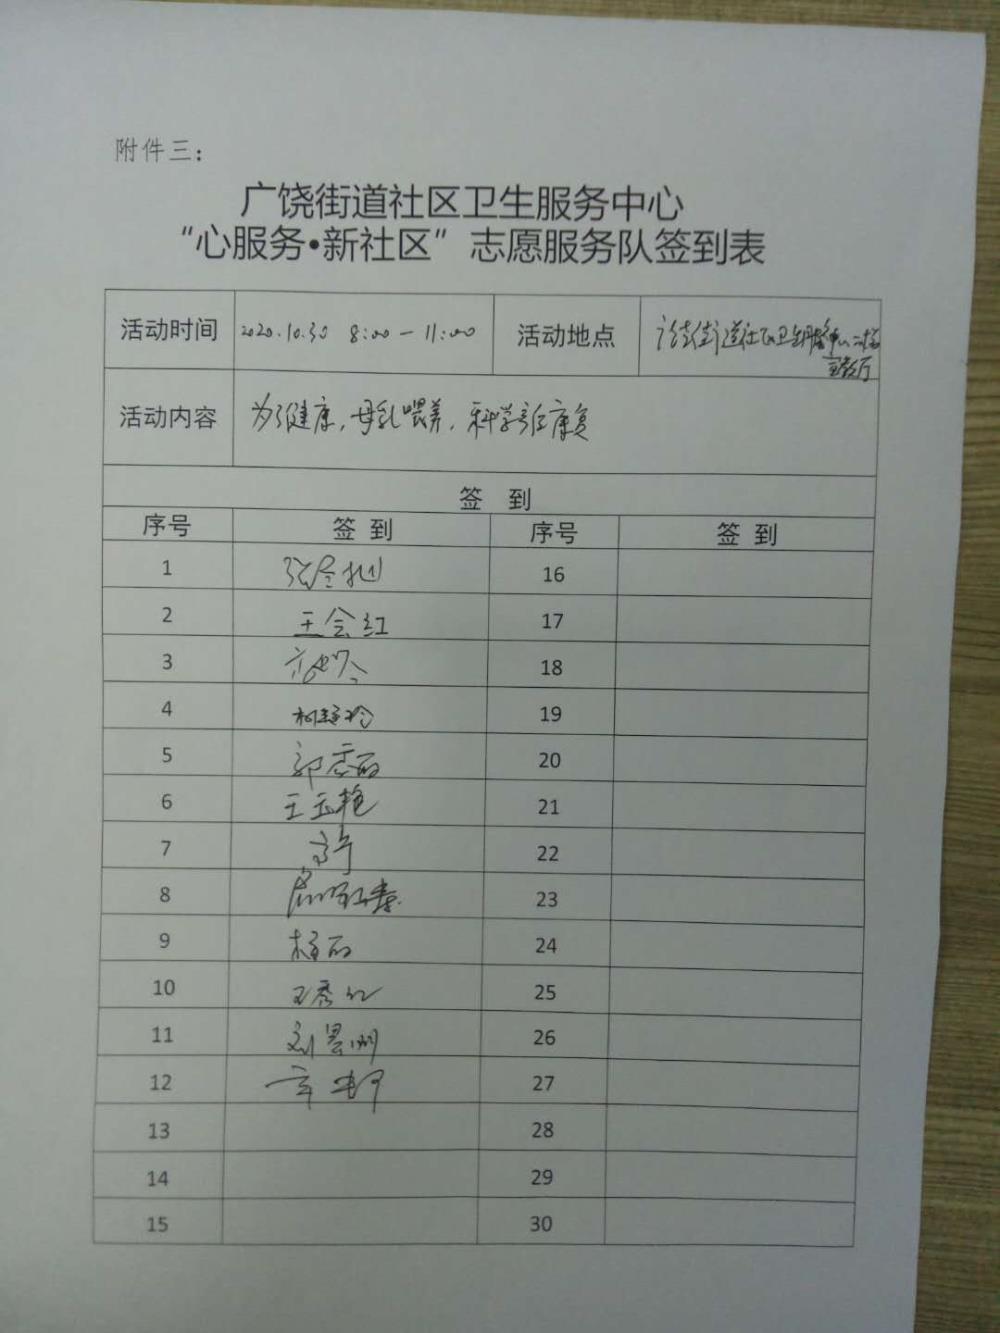 附件三：
广饶街道社区卫生服务中心
“心服务•新社区”志愿服务队签到表
活动时间 2020.10.30 8:00—11:00 活动地点 街道社区卫生服务中心二楼
活动内容 为了健康，母乳喂养，科学 康复
签 到
序号 签到 序号 签到
1 16
2 王会红 17
3 18
4 19
5 郭秀丽 20
6 王玉艳 21
7 22
8 23
9 24
10 王秀红 25
11 刘景明 26
12 27
13 28
14 29
15 30